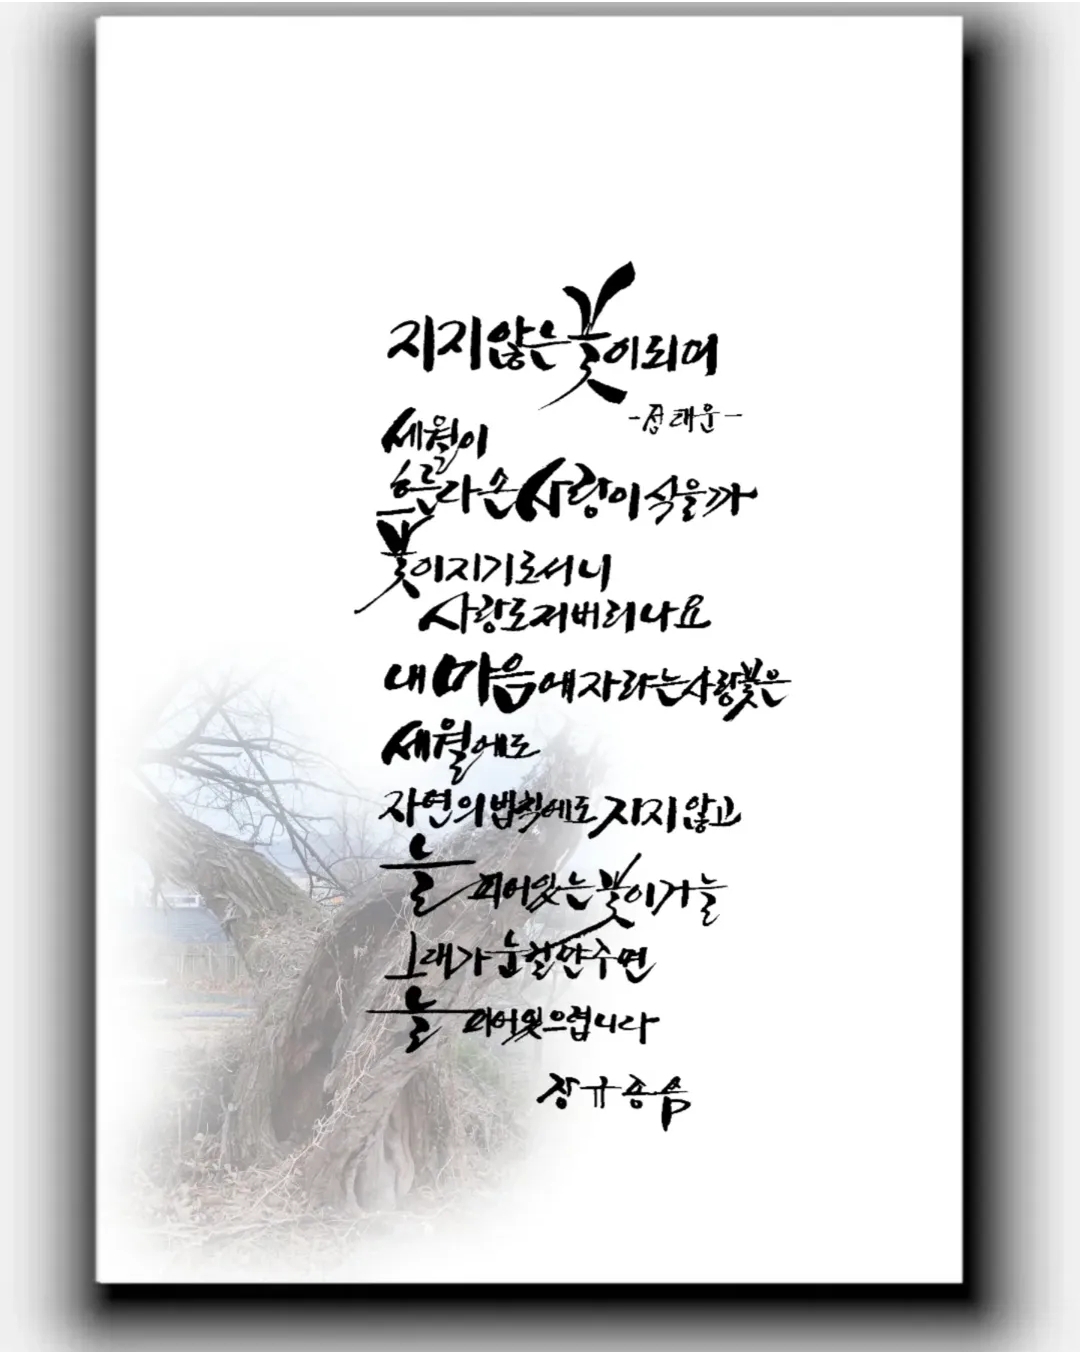 지지않는 꽃이되며
-정태운-
세월이
흐른다손 사랑이 삭을까
꽃이지기로서니
사랑도저버리나요
내 마음에자라는사랑꽃은
세월에도
자연의법칙에도 지지않고
늘 피어있는 꽃이거늘
그대가 눈길만주면
늘 피어있으렵니다
장규